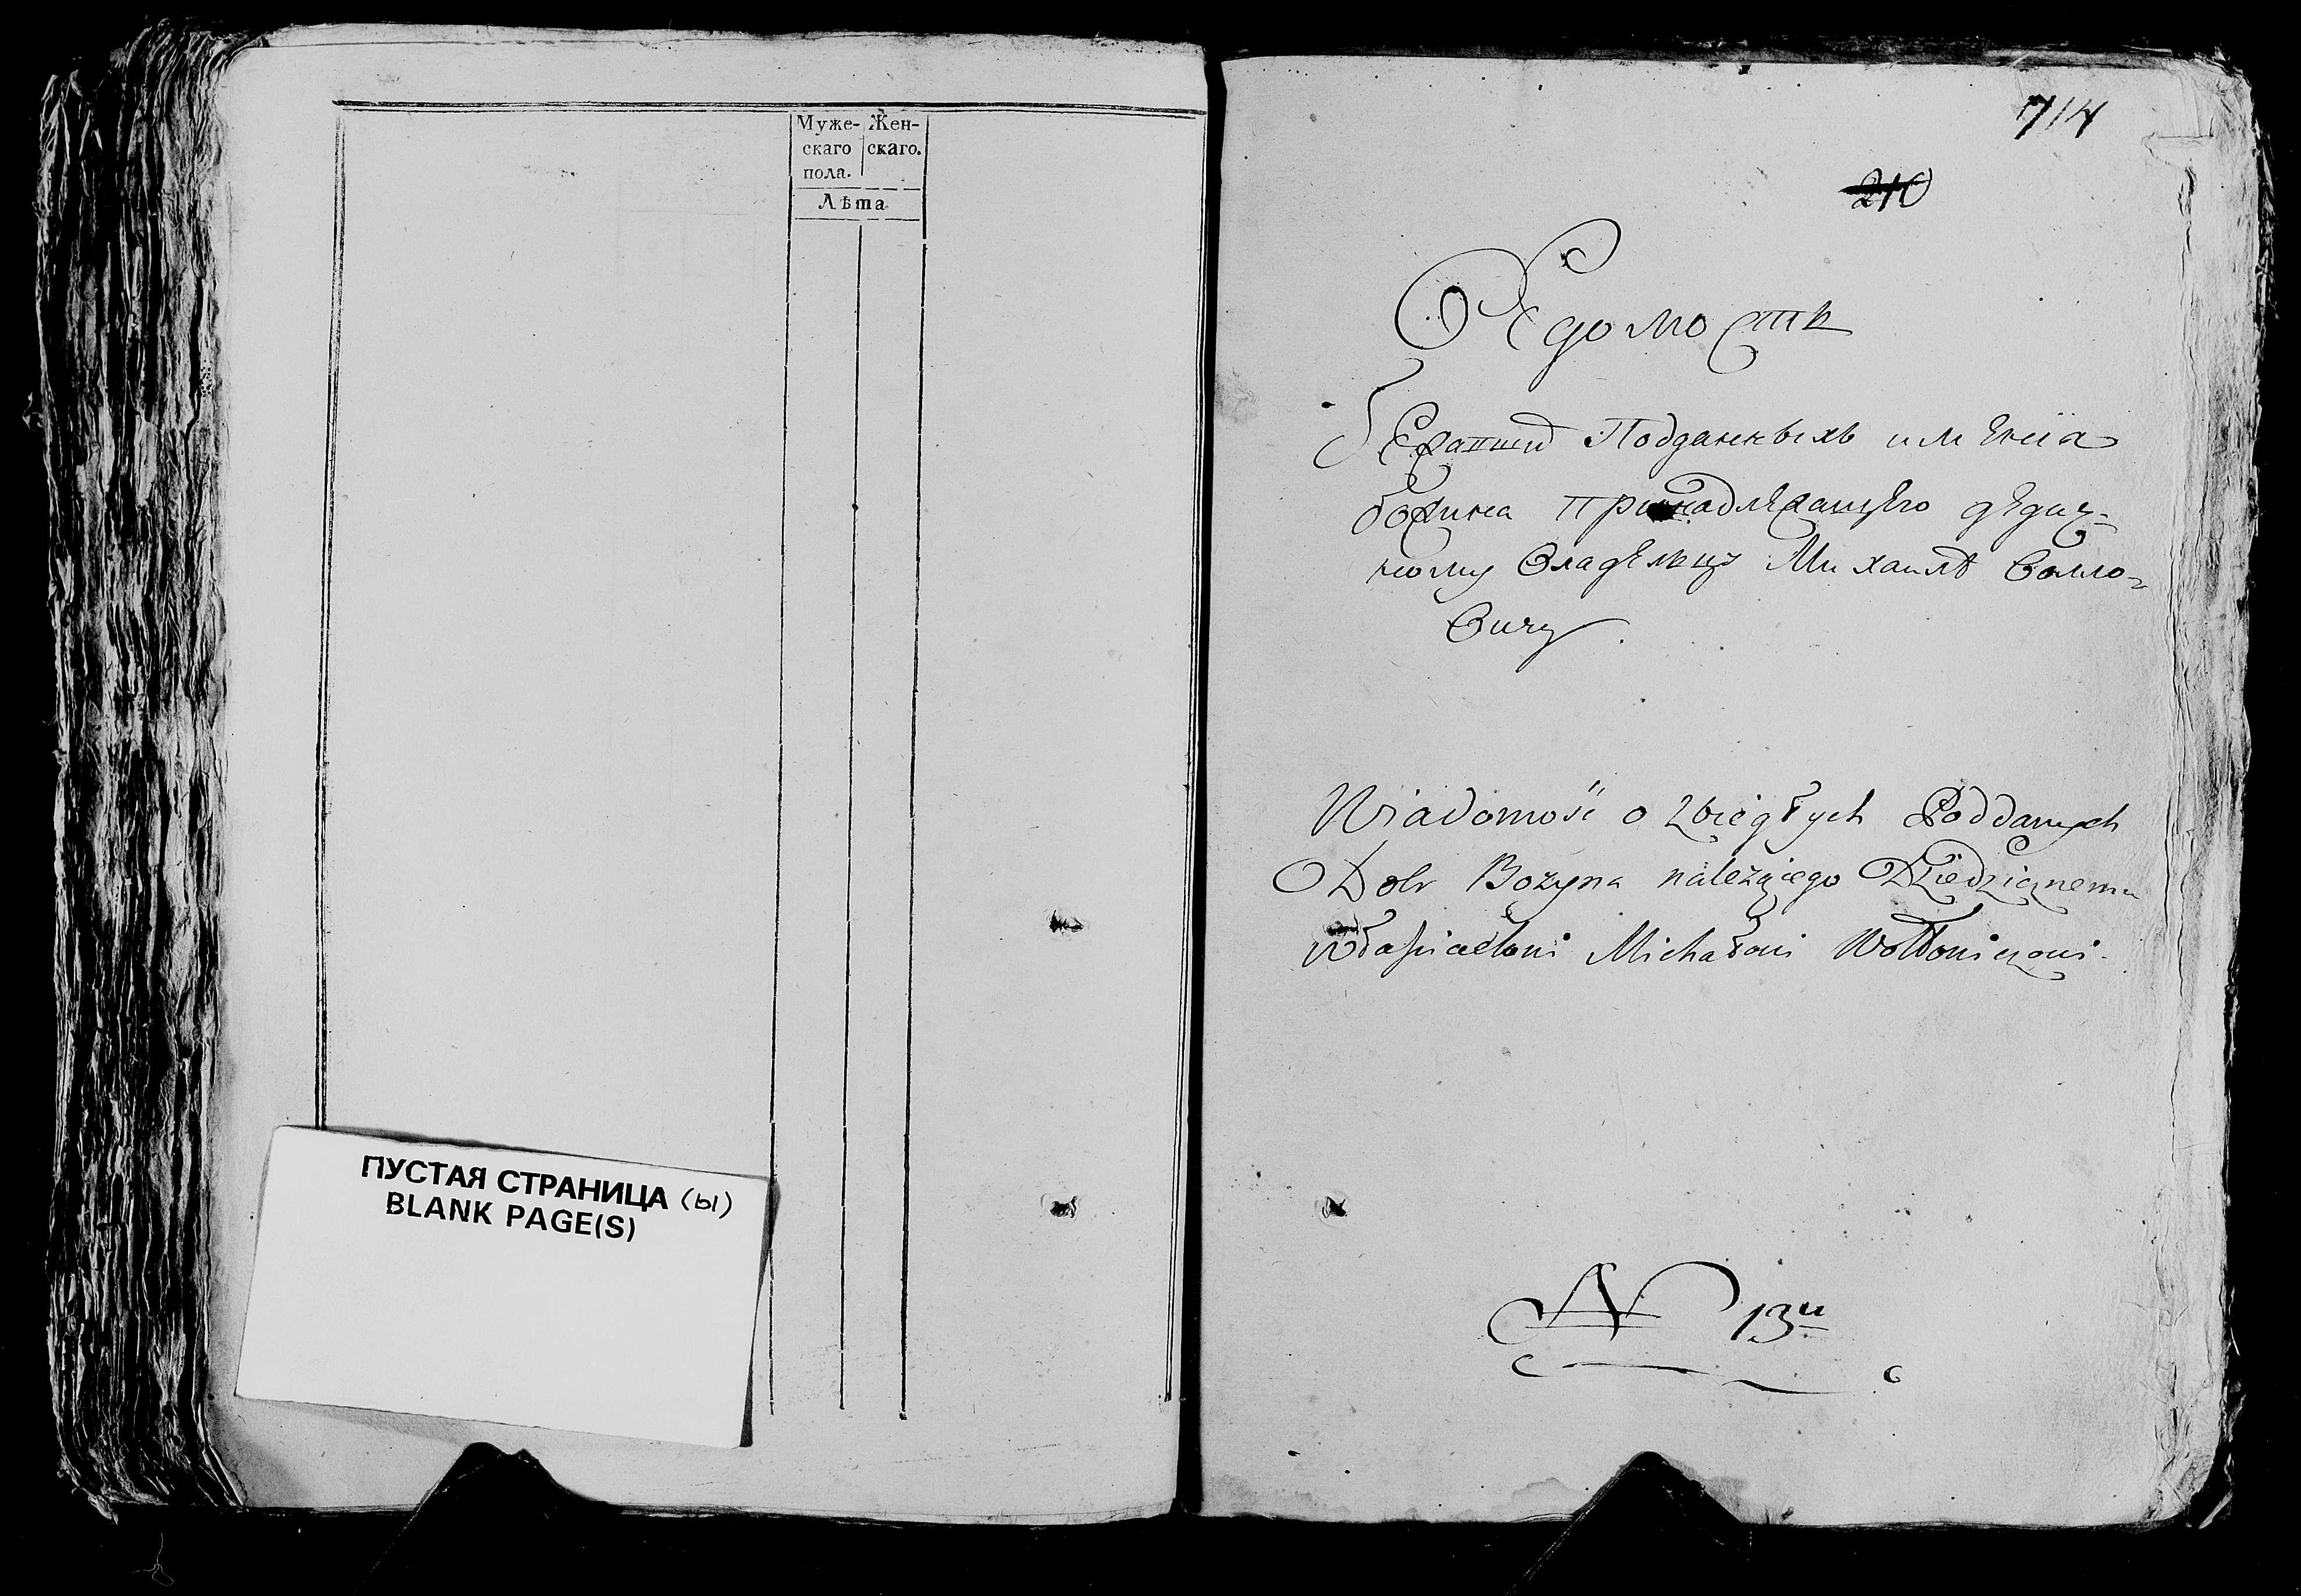 Муже- Жен-
скаго скаго.
пола.
Лѣта
ПУСТАЯ СТРАНИЦА (ы)
BLANK PAGE(S)
714
210
Ведомость
Бежавшид Подданныхъ имениа
божина принадлежащего дедич-
ному Владельцу Михаилѣ Волло-
Вичу
Wiadomość o zbiegłych Poddanych
Dobr Bozyna należącego Dziedzicznemu
włascicielowi Michałowi Wołłowiczowi.
N 13й